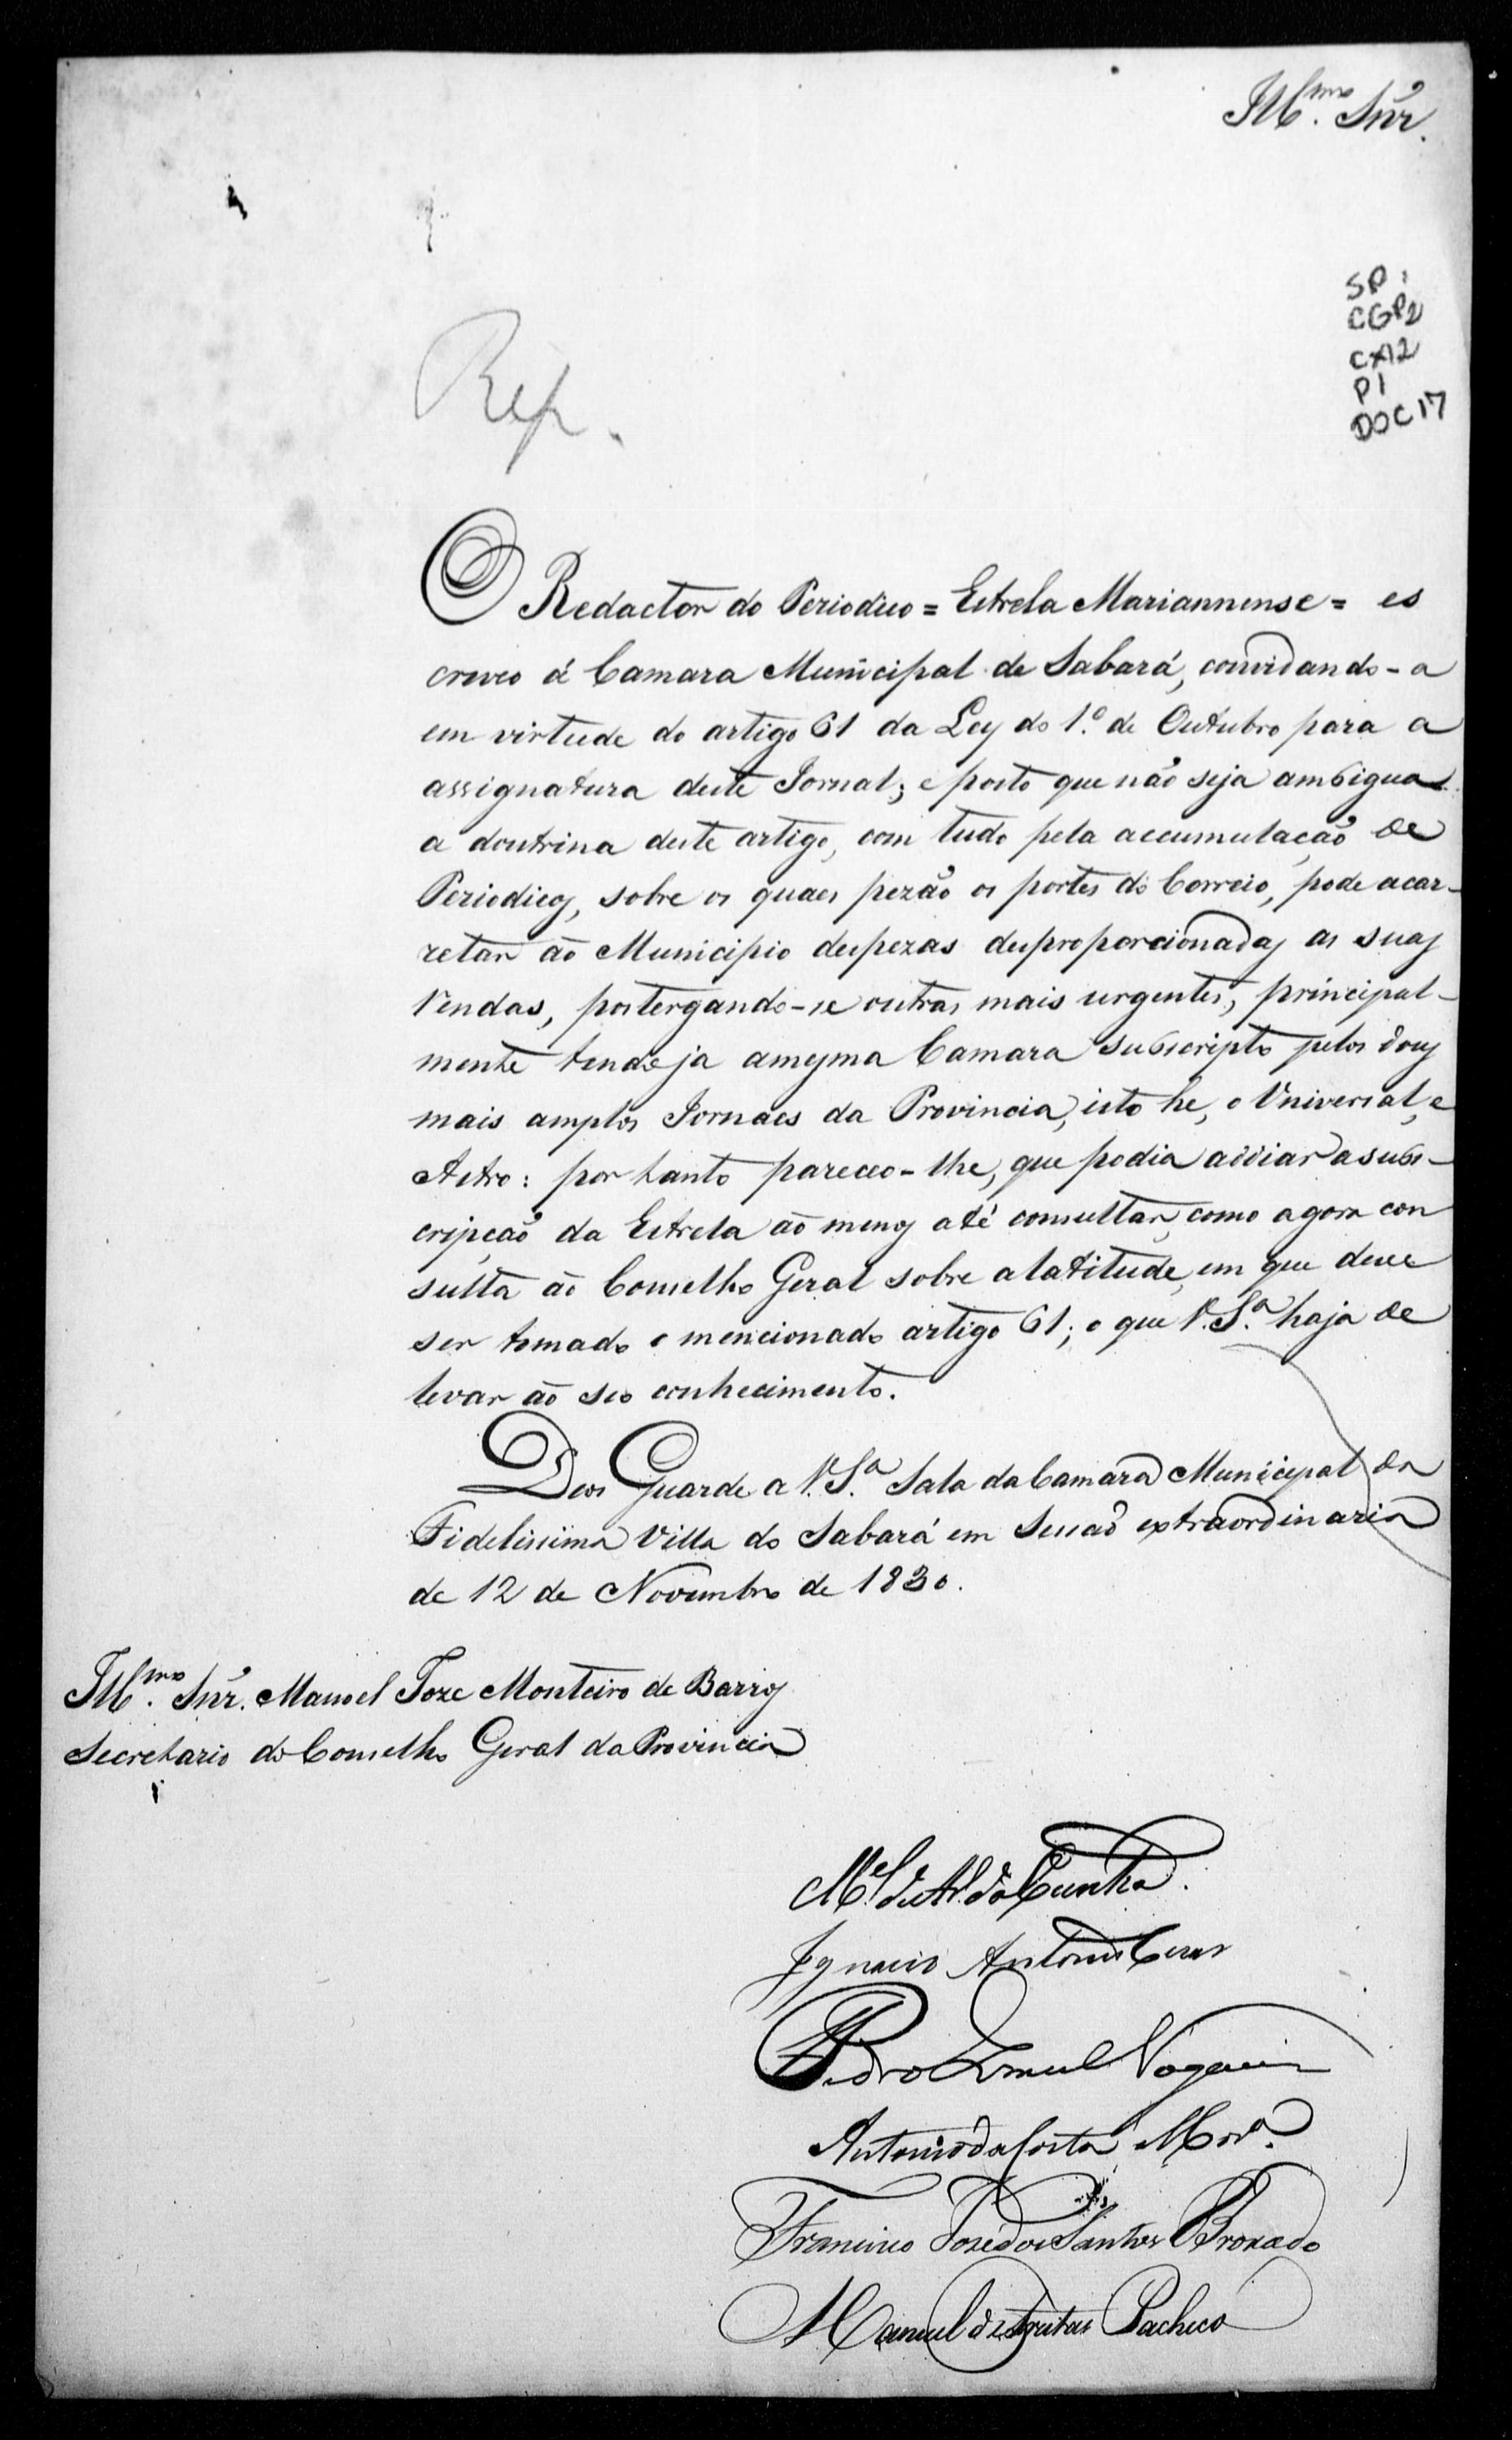 Ill.mo Snr.
SP 1
CGP2
CX12
P1
DOC 17
Rep.
O Redactor do Periodico = Estrela Mariannense = es
creveo á Camara Municipal de Sabará, convidando-a
em virtude do artigo 61 da Ley do 1.º de Outubro para a
assignatura deste Jornal; e posto que não seja ambigua
a doutrina deste artigo, com tudo pela accumulação de
Periodicos, sobre os quaes pezão os portes do Correio, pode acar-
retar ao Municipio despezas desproporcionadas as suas
Rendas, postergando-se outras mais urgentes, principal-
mente tendo ja a mesma Camara subscripto pelos dous
mais amplos Jornaes da Provincia, isto he, o Universal, e
Astro: por tanto pareceo-lhe, que podia addiar a subs-
cripção da Estrela ao menos até consultar, como agora con
sulta ao Conselho Geral sobre a latitude, em que deve
ser tomado o mencionado artigo 61; o que V.S.ª haja de
levar ao seo conhecimento.
Deos Guarde a V.S.ª Sala da Camara Municipal da
Fidelissima Villa do Sabará em Sessão extraordinaria
de 12 de Novembro de 1830.
Ill.mo Snr. Manoel Joze Monteiro de Barros
Secretario do Conselho Geral da Provincia
M.el de Ar.º da Cunha.
Ignacio Antonio Cezar
Pedro Nogueira
Antonio da Costa Mor.ª
Francisco José dos Santos Broxado
Manuel de Freitas Pacheco